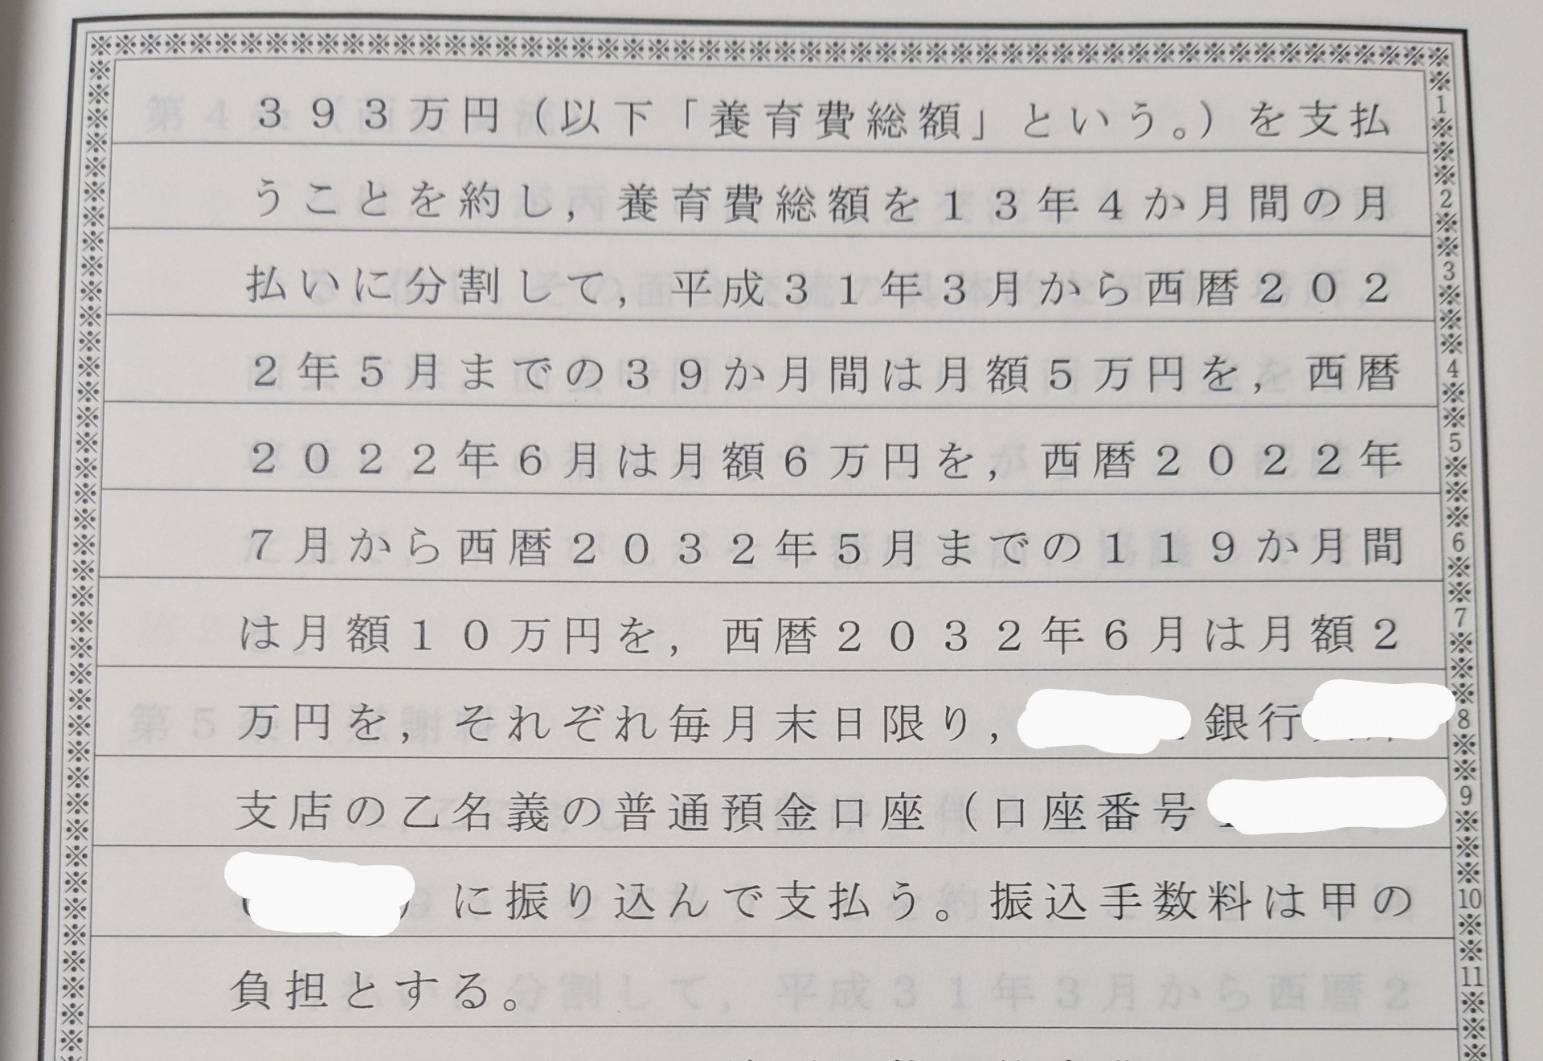 393万円（以下「養育費総額」という。）を支払
うことを約し，養育費総額を13年4か月間の月
払いに分割して，平成31年3月から西暦202
2年5月までの39か月間は月額5万円を，西暦
2022年6月は月額6万円を，西暦2022年
7月から西暦2032年5月までの119か月間
は月額10万円を，西暦2032年6月は月額2
万円を，それぞれ毎月末日限り，銀行
支店の乙名義の普通預金口座（口座番号
）に振り込んで支払う。振込手数料は甲の
負担とする。
1
2
3
4
5
6
7
8
9
10
11